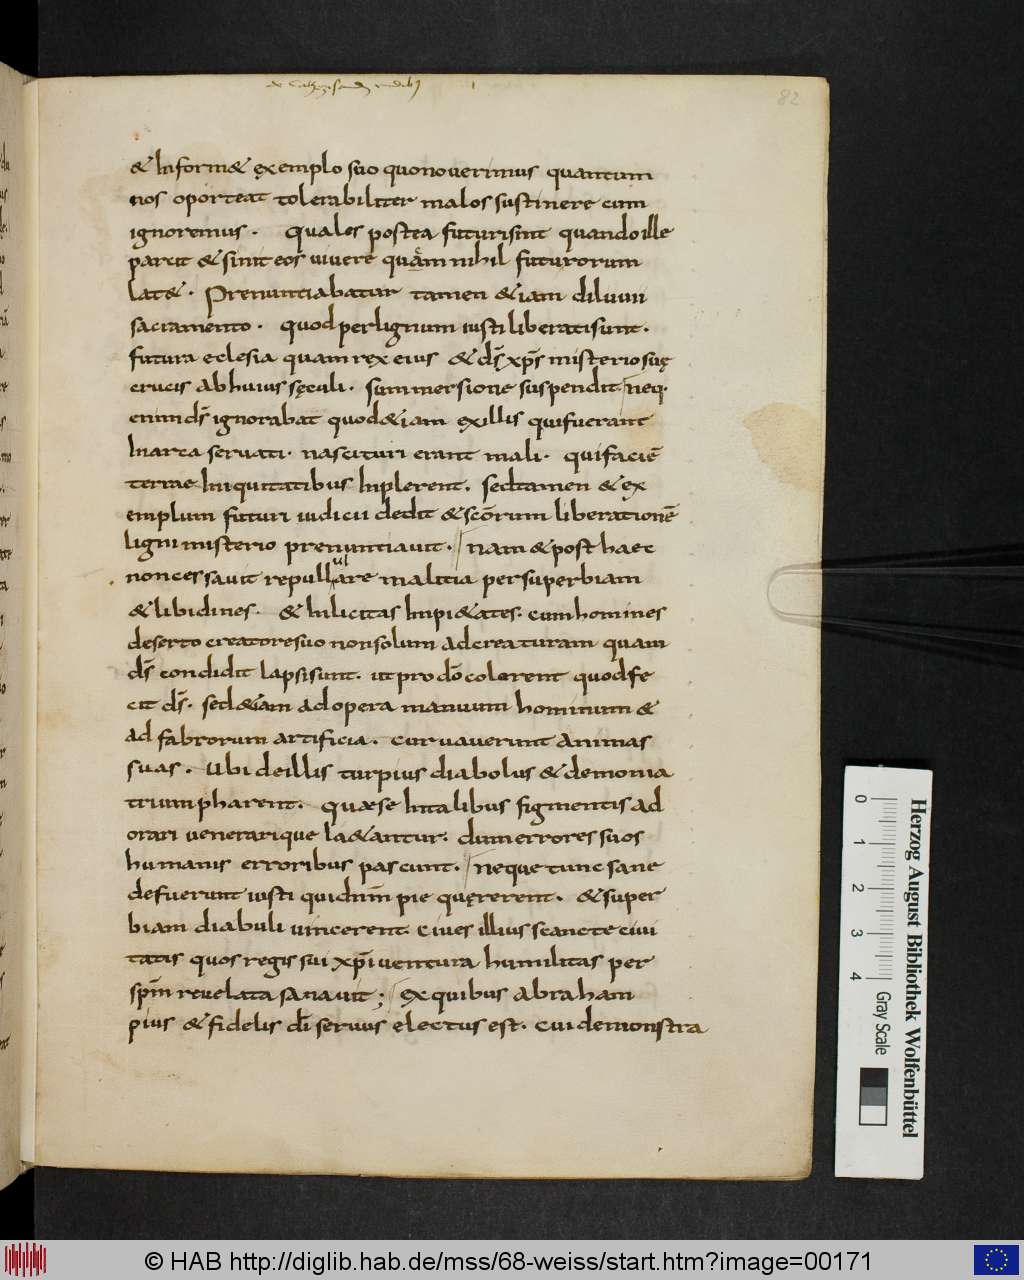 de catezizandis rudibus
82
& Inform& ęxemplo suo quonouerimus quantum
nos oporteat tolerabiliter malos sustinere cum
ignoremus. Quales postea futurisint quandoille
parcit & sinit eos uiuere quam nihil futurorum
lat&. Prenuntiabatur tamen & iam diluuii
sacramento. quod perlignum iusti liberatisunt.
futura eclesia quam rex eius & ds̄ xp̄s misterio suę
crucis abhuius sęculi. summersione suspendit. neq.
enim ds̄ ignorabat quod&iam exillis quifuerant
Inarca seruati. nascituri erant mali. quifaciē
terrae Iniquitatibus Inplerent. sedtamen & ex
emplum futuri iudicii dedit & scōrum liberationē
ligni misterio prenuntiauit. Nam & post haec
noncessauit repullulare malitia persuperbiam
& libidines. & Inlicitas Inpi&ates. cumhomines
deserto creatoresuo nonsolum adcreaturam quam
ds̄ condidit lapsisunt. ut pro dō colerent quodfe
cit ds̄. sed&iam adopera manuum hominum &
ad fabrorum artificia. curuauerunt animas
suas. Ubi deillis turpius diabolus & demonia
triumpharent. Quæse Intalibus figmentis ad
orari uenerarique la&antur. dumerrores suos
humanis erroribus pascunt. neque tunc sane
defuerunt iusti quidnm̄ pie quęrerent. & super
biam diabuli uincerent. ciues illius scancte ciui
tatis quos regis sui xp̄i uentura humilitas per
spm̄ reuelata sanauit; ęx quibus abraham
pius & fidelis dī seruus electus est. cui demonstra
Herzog August Bibliothek Wolfenbüttel
0 1 2 3 4 Gray Scale
© HAB http://diglib.hab.de/mss/68-weiss/start.htm?image=00171